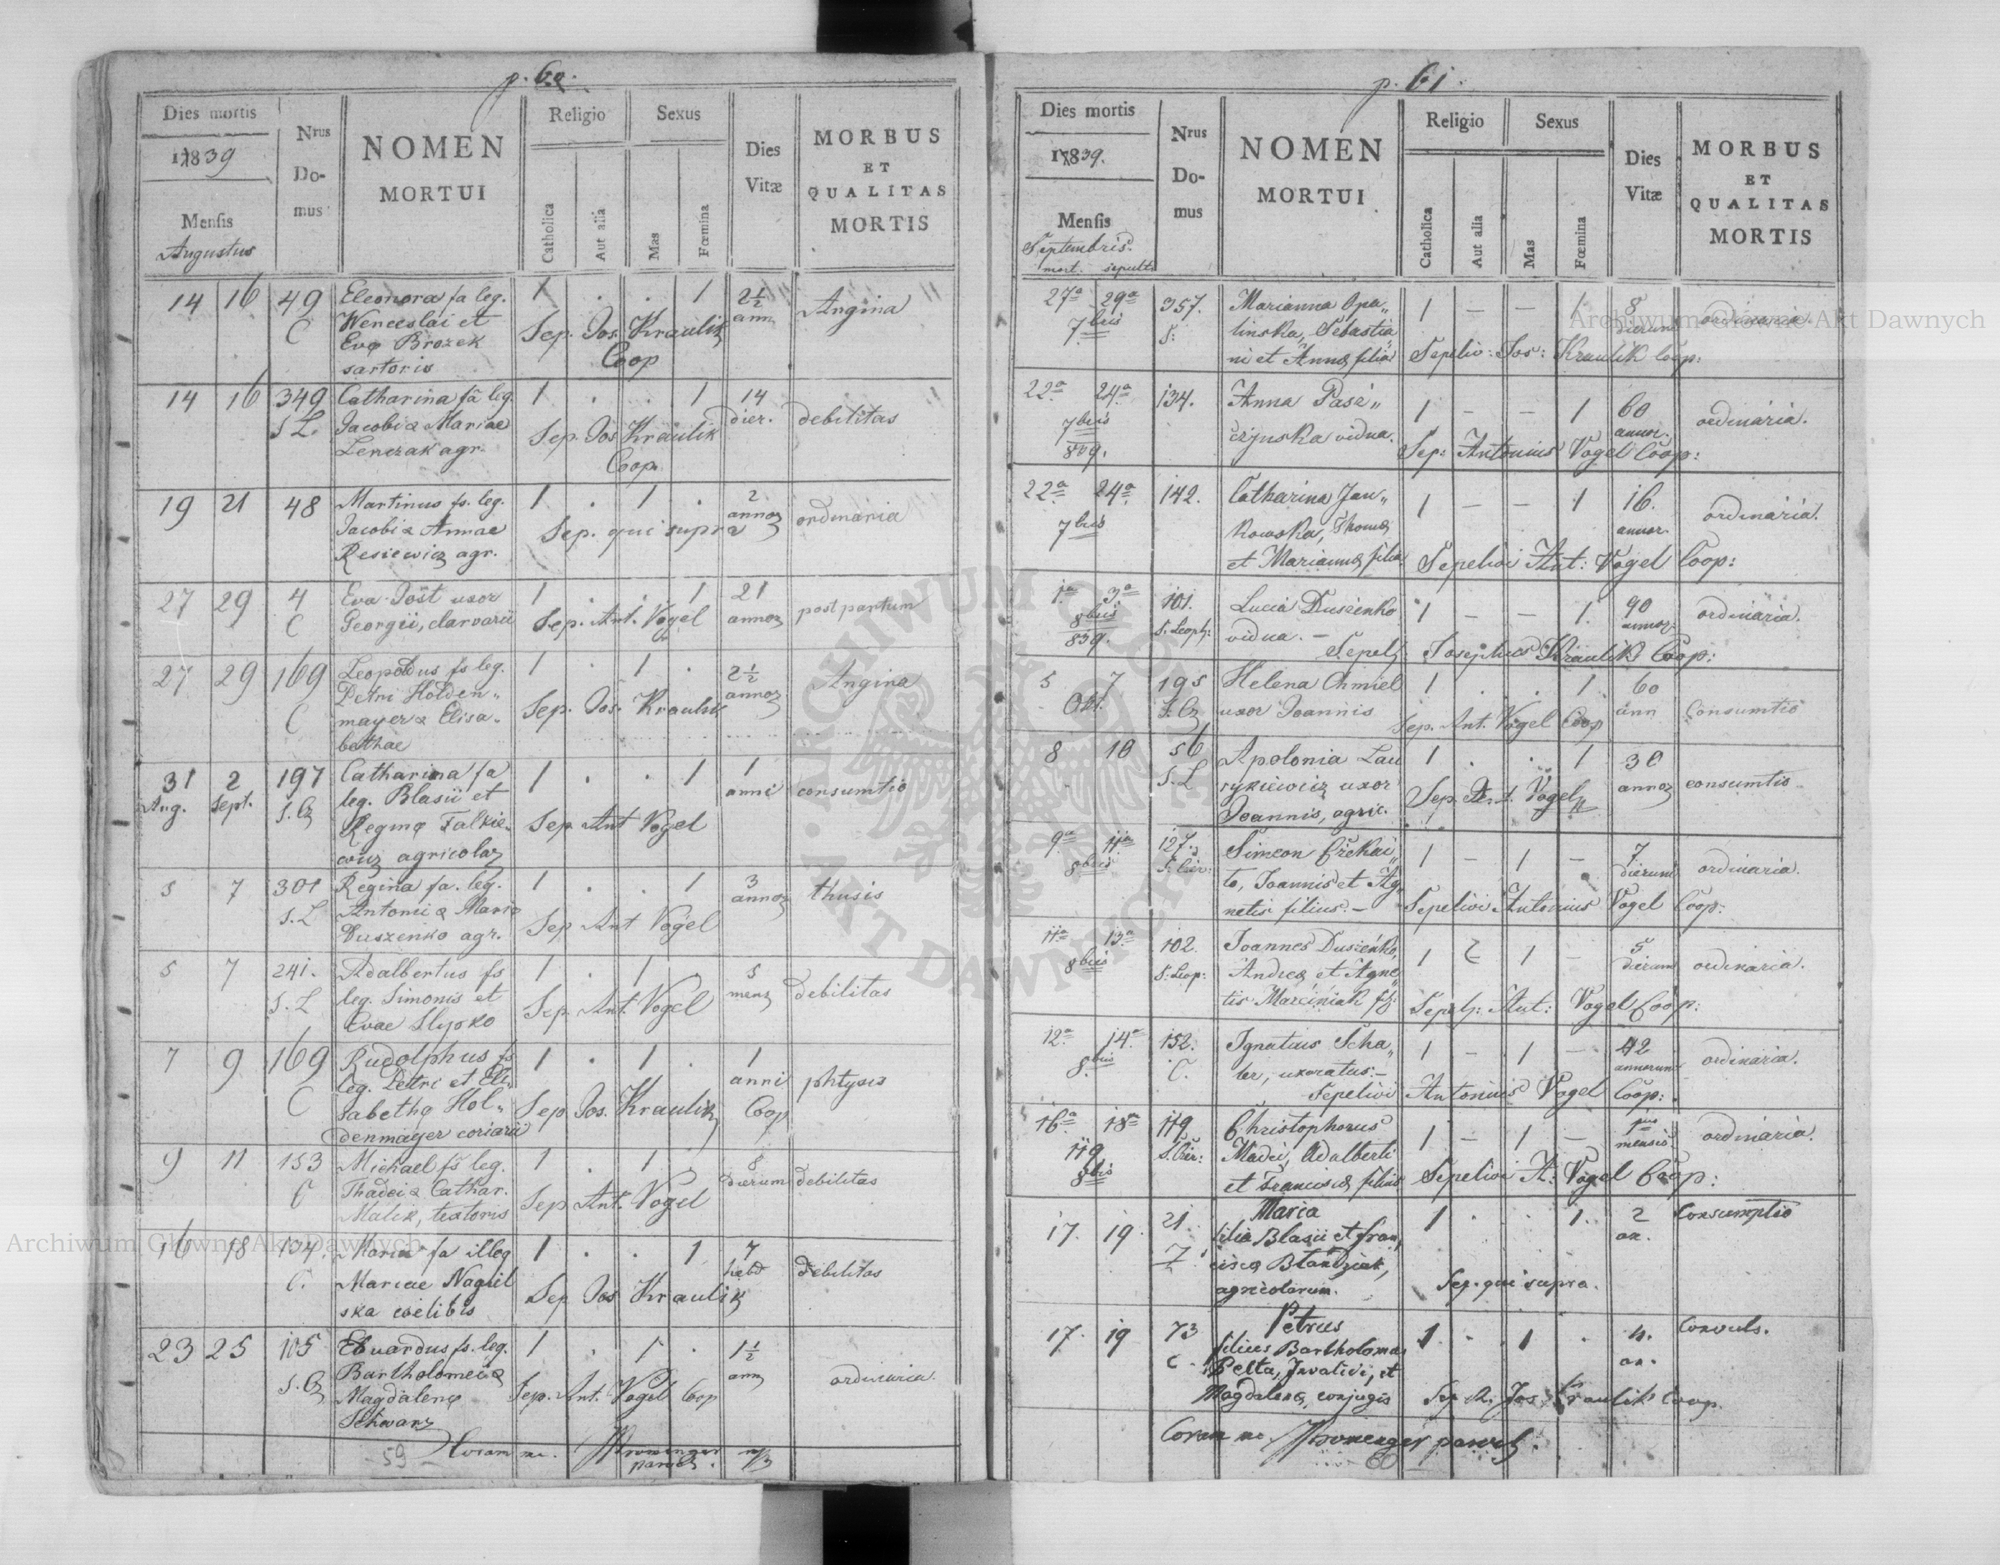 p. 60.
Dies mortis
1839
Mensis
Augustus
Nrus
Do-
mus
NOMEN
MORTUI
Religio
Catholica
Aut alia
Sexus
Mas
Fœmina
Dies
Vitæ
MORBUS
ET
QUALITAS
MORTIS
14 16 49 Eleonora fa leg. 1 . . 1 2½ Angina
C Wenceslai et Sep. Jos. Kraulik ann
Eva Brozek Coop
sartoris
14 16 349 Catharina fa leg. 1 . . 1 14 debilitas
S L. Jacobi & Mariae Sep. Jos Kraulik dier.
Lenczak agr. Coop.
19 21 48 Martinus fs. leg. 1 . 1 . 2 ordinaria
Jacobi & Annae Sep. qui supra annoz
Resiewicz agr.
27 29 4 Eva Jöst uxor 1 . . 1 21 post partum
C Georgii, clarvarii Sep. Ant. Vogel annoz
27 29 169 Leopoldus fs leg. 1 . 1 . 2½ Angina
Petri Holden„ annoz
C mayer & Elisa- Sep. Jos. Kraulik
bethae
31 2 197 Catharina fa 1 . . 1 1 consumtio
Aug. Sept. leg. Blasii et anni
Reginæ Falkie- Sep Ant Vogel
wicz agricolaz
5 7 301 Regina fa. leg. 1 . . 1 3 thusis
S. L Antonii & Maria annoz
Duszenko agr. Sep Ant Vogel
5 7 241. Adalbertus fs 1 . 1 . 5 debilitas
S. L leg. Simonis et Sep. Ant. Vogel menz
Evae Slysko
7 9 169 Rudolphus fs 1 . 1 . 1 phtysis
leg. Petri et Eli- anni
C sabethæ Hol„ Sep Jos. Kraulik Coop
denmayer coriarii
9 11 153 Michael fs leg. 1 . 1 . 8 debilitas
C Thadei & Cathar. Sep Ant. Vogel dierum
Malik, textoris
16 18 134. Maria fa illeg 1 . . 1 7 debilitas
C. Mariae Nagiel hebd
ska coelibis Sep Jos Kraulik
23 25 105 Eduardus fs. leg. 1 . 1 . 1½ ordinaria
Bartholomei & ann
Magdalenæ Sep. Ant. Vogel Coop
Schwarz
59 Coram me. Kromenger paroch. mp
p. 61.
Dies mortis
1839.
Mensis
Septembris.
mort. sepult.
Nrus
Do-
mus
NOMEN
MORTUI
Religio
Catholica
Aut alia
Sexus
Mas
Fœmina
Dies
Vitæ
MORBUS
ET
QUALITAS
MORTIS
27a 29a 357. Marianna Opa„ 1 – – 1 8 ordinaria.
7bris S: linska, Sebastia„ dierum
ni et Annæ filia Sepeliv: Jos: Kraulik Coop:
22a 24a 134. Anna Pasz„ 1 – – 1 60 ordinaria.
7bris czynska vidua. annor.
839. Sep: Antonius Vogel Coop:
22a 24a 142. Catharina Jan„ 1 – – 1 16. ordinaria.
7bris kowska, Thomæ annor.
et Mariannæ filia Sepelivi Ant: Vogel Coop:
1a 3a 101. Lucia Duszenko 1 – – 1. 90 ordinaria.
8bris S. Leop: vidua. – annor
839. Sepel: Josephus Kraulik Coop:
5 7 195 Helena Chmiel 1 . . 1 60 Consumtio
Okt. uxor Joannis Sep. Ant. Vogel Coop ann
8 10 56 Apolonia Lau 1 . . 1 30 consumtio
S. L rykiewicz uxor annoz
Joannis, agric. Sep. Ant. Vogel
9a 11a 127. Simeon Czekai„ 1 – 1 – 7 ordinaria.
8bris to, Joannis et Ag„ dierum
netis filius. – Sepelivi Antonius Vogel Coop:
11a 13a 102. Joannes Duszenko, 1 – 1 – 5 ordinaria.
8bris S: Leop: Andreæ et Agne dierum
tis Marciniak fs: Sepel: Ant: Vogel Coop:
12a 14a 152. Ignatius Scha„ 1 – 1 – 42 ordinaria.
8bris C. ter, uxoratus. – annorum
Sepelivi Antonius Vogel Coop:
16a 18a 119. Christophorus 1 – 1 – mensis ordinaria.
119 Madei, Adalberti
8bris et Franciscæ filius Sepelivi A: Vogel Coop:
17. 19. 21. Maria 1 . . 1. 2 Consumptio
filia Blasii et fran„ an.
ciscæ Blandziak,
agricolarum. Sep. qui supra.
17. 19 73 Petrus 1 . 1 . 4. Convuls.
C. filius Bartholomæi an.
Pelta, Invalidi, et
Magdalenæ, conjugis Sep. R. Jos Kraulik Coop.
Coram me Kromenger paroch.
60
Archiwum Główne Akt Dawnych
Archiwum Główne Akt Dawnych
ARCHIWUM GŁÓWNE · AKT DAWNYCH ·